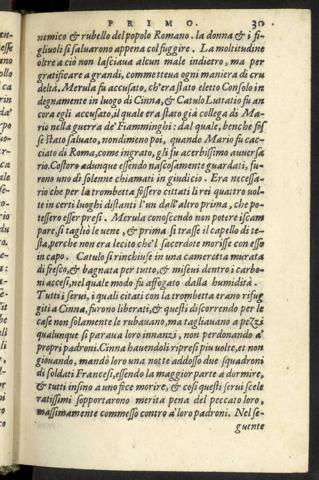 PRIMO. 30
nemico & rubello del popolo Romano. la donna & i fi-
gliuoli si saluarono appena col fuggire. La moltitudine
oltre a ciò non lasciaua alcun male indietro, ma per
gratificare a grandi, commetteua ogni maniera di cru
deltà. Merula fu accusato, ch'era stato eletto Consolo in
degnamente in luogo di Cinna, & Catulo Luttatio fu an
cora egli accusato, il quale era stato già collega di Ma-
rio nella guerra de' Fiamminghi: dal quale, benche fos
se stato saluato, nondimeno poi, quando Mario fu cac-
ciato di Roma, come ingrato, gli fu acerbissimo auuersa
rio. Costoro adunque essendo nascosamente guardati, fu-
rono uno di solenne chiamati in giudicio. Era necessa-
rio che per la trombetta fossero cittati li rei quattro uol-
te in certi luoghi distanti l'un dall'altro prima, che po-
tessero esser presi. Merula conoscendo non potere iscam
pare, si tagliò le uene, & prima si trasse il capello di te-
sta, perche non era lecito che'l sacerdote morisse con esso
in capo. Catulo si rinchiuse in una cameretta murata
di fresco, & bagnata per tutto, & miseui dentro i carbo-
ni accesi, nel quale modo fu affogato dalla humidità.
Tutti i serui, i quali citati con la trombetta erano rifug
giti a Cinna, furono liberati, & questi discorrendo per le
case non solamente le rubauano, ma tagliauano a pezzi
qualunque si paraua loro innanzi, non perdonando a'
propri padroni. Cinna hauendoli ripresi piu uolte, et non
giouando, mandò loro una notte addosso due squadroni
di soldati Francesi, essendo la maggior parte a dormire,
& tutti insino a uno fece morire, & così questi serui scele
ratissimi sopportarono merita pena del peccato loro,
massimamente commesso contro a' loro padroni. Nel se-
guente